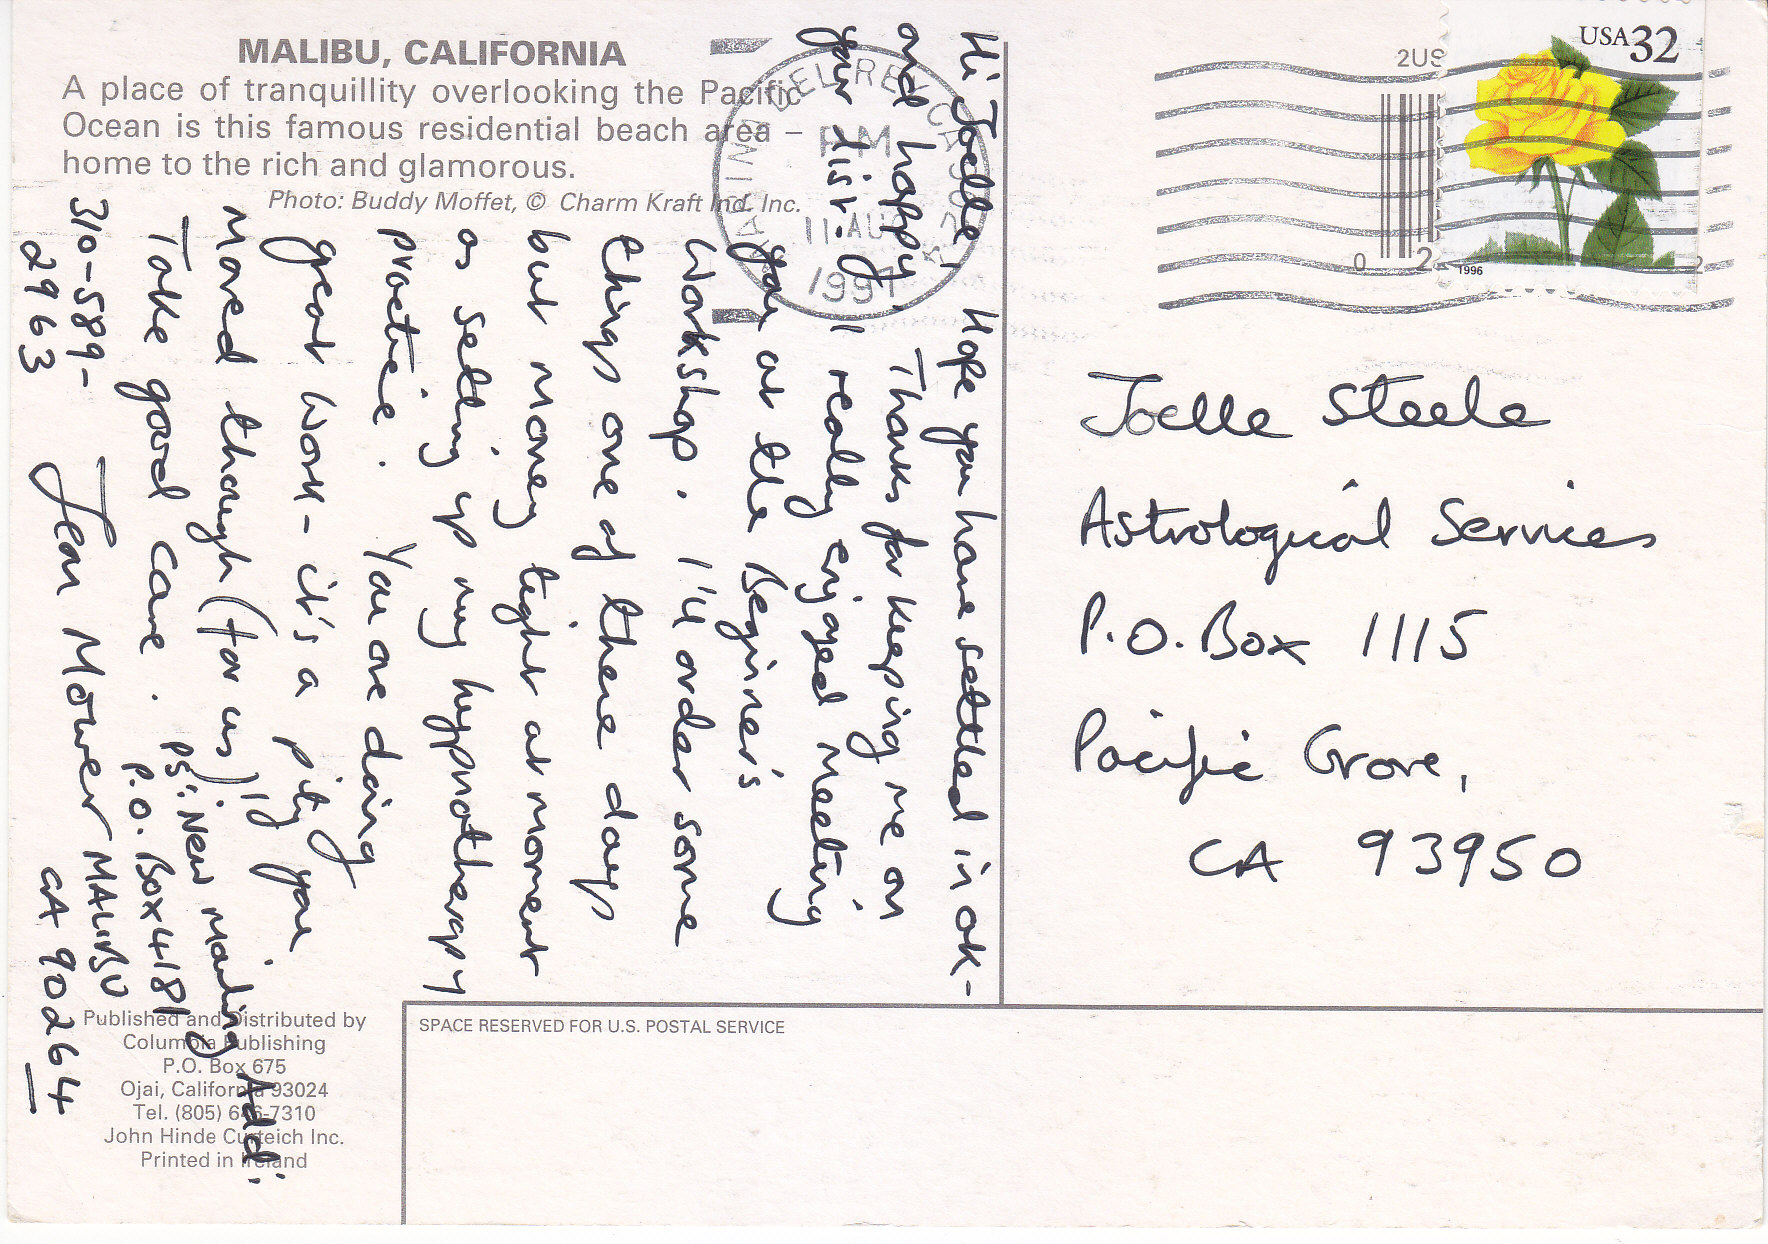 MALIBU, CALIFORNIA
A place of tranquillity overlooking the Pacific
Ocean is this famous residential beach area –
home to the rich and glamorous.
Photo: Buddy Moffet, © Charm Kraft Ind. Inc.
Hi Joelle, Hope you have settled in ok -
and happy. Thanks for keeping me on
your list. I really enjoyed meeting
you at the Beginner's
Workshop. I'll order some
things one of these days
but money tight at moment
as setting up my hypnotherapy
practie. You are doing
great work - it's a pity you
moved though (for us)
Take good care.
Jean Mower
310-589-
2963
PS: New mailing Add:
P.O. Box 4181
MALIBU
CA 90264
MARINA DEL REY CA
PM
11 AUG
1997
USA 32
1996
Joelle Steele
Astrological Services
P.O. Box 1115
Pacific Grove,
CA 93950
Published and Distributed by
Columbia Publishing
P.O. Box 675
Ojai, California 93024
Tel. (805) 646-7310
John Hinde Curteich Inc.
Printed in Ireland
SPACE RESERVED FOR U.S. POSTAL SERVICE